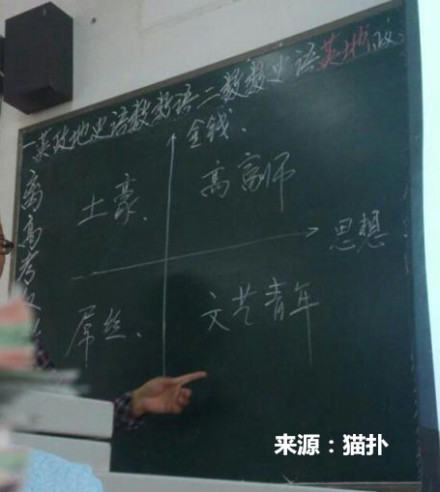 一英政地史语数数语二数数史语英地政
离高考
金钱、
土豪、
高富师
思想
屌丝、
文艺青年
来源：猫扑